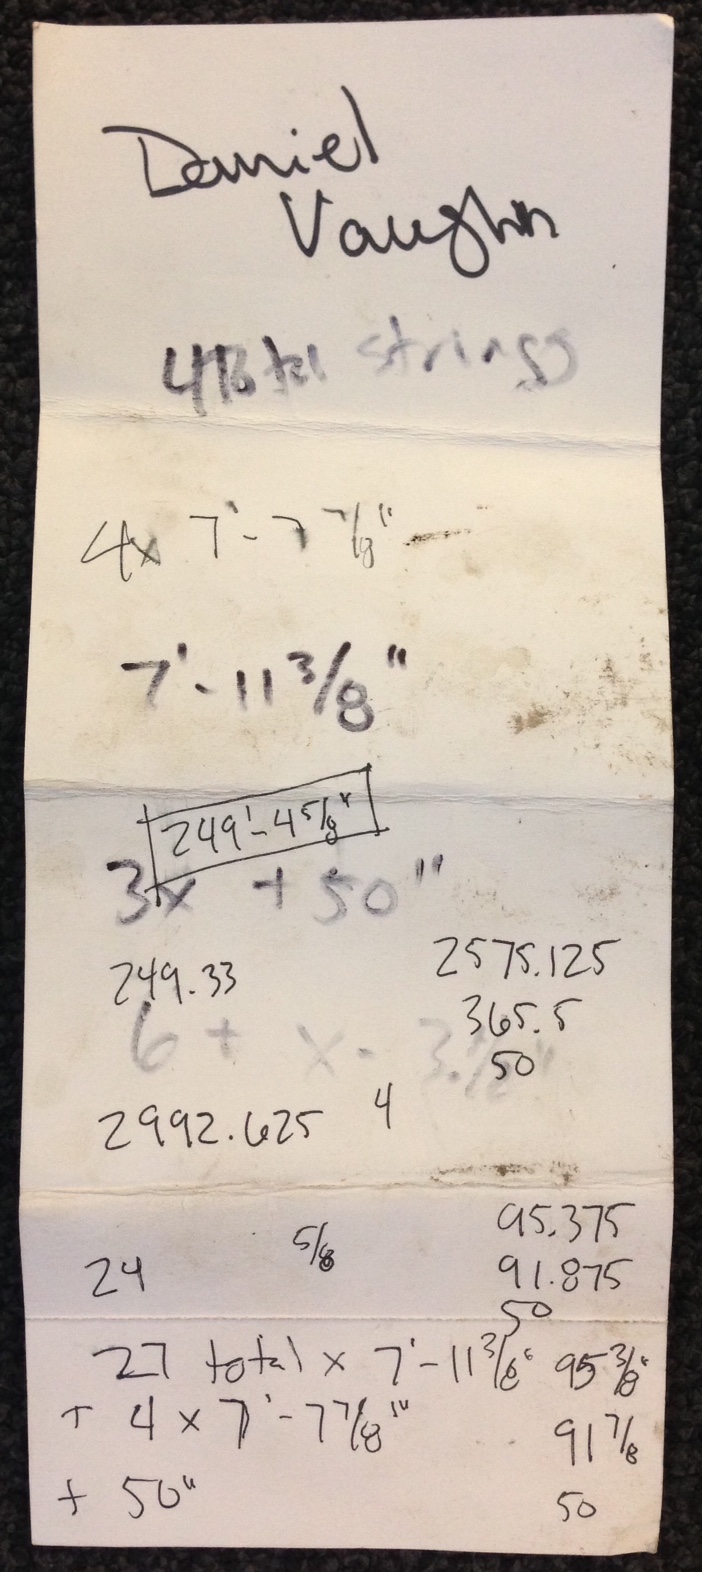 Daniel
Vaughn
4 total strings
4x 7'-7 7/8"
7'-11 3/8"
249'-4 5/8"
3x + 50"
249.33 2575.125
365.5
6 + x - 3 1/2"
50
2992.625 4
95.375
24 5/8 91.875
50
27 total x 7'-11 3/8" 95 3/8"
+ 4 x 7'-7 7/8" 91 7/8
+ 50" 50